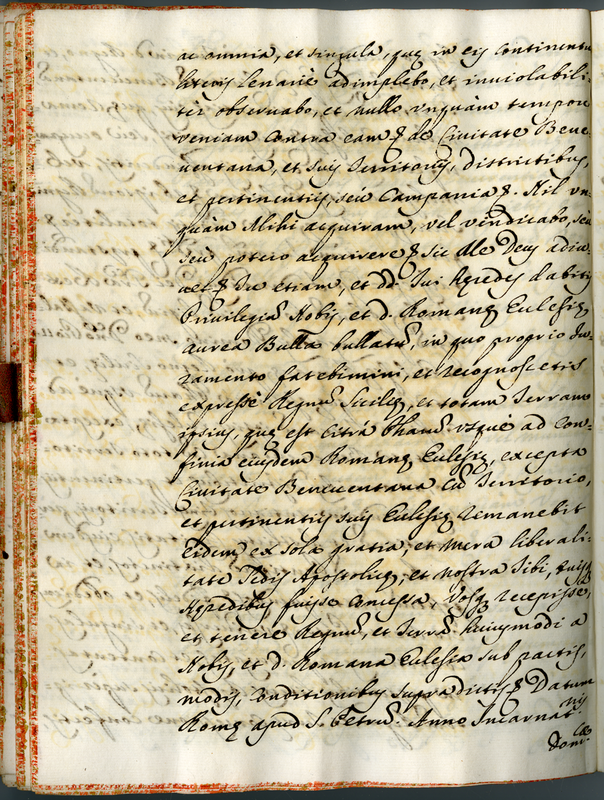 ac omnia, et singula, quę in eis continentu
litteris plenariè adimplebo, et inviolabili-
ter observabo, et nullo unquàm tempore
veniam contra eam & de Civitate Bene-
ventana, et suis Territorijs, districtibus,
et pertinentijs, seù Campania &. Nil un-
quàm Mihi acquiram, vel vindicabo, seù
seù potero acquirere & sic me Deus adiu-
vet & Tu etiam, et dd. Tui hęredes dabitis
Privilegiũ Nobis, et d. Romanę Ecclesię
aurea Bulla bullatũ, in quo proprio Iu-
ramento fatebimini, et recognoscetis
expressè Regnũ Sicilię, et totam Terram
ipsius, quę est citrà Pharũ usquè ad con-
finia eiusdem Romanę Ecclesię, excepta
Civitate Beneventana cũ Territorio,
et pertinentijs suis Ecclesię remanebit
Eidem ex sola gratia, et mera liberali-
tate Sedis Apostolicę, et nostra Tibi, tuisq
hęredibus fuisse concessa, Vosq recepisse,
et tenere Regnũ, et Terrã huiusmodi a
Nobis, et d. Romana Ecclesia sub pactis,
modis, conditionibus supradictis & Datum
Romę apud S. Petrũ. Anno Incarnat.nis
Domi.cæ